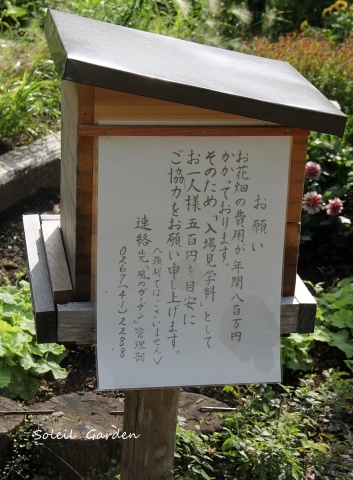 お願い
お花畑の費用が年間八百万円
かかっております。
そのため、入場見学料として
お一人様五百円を目安に
ご協力をお願い申し上げます。
〈強制ではございません〉
連絡先「風のガーデン」管理部
0267(41)2288
Soleil Garden